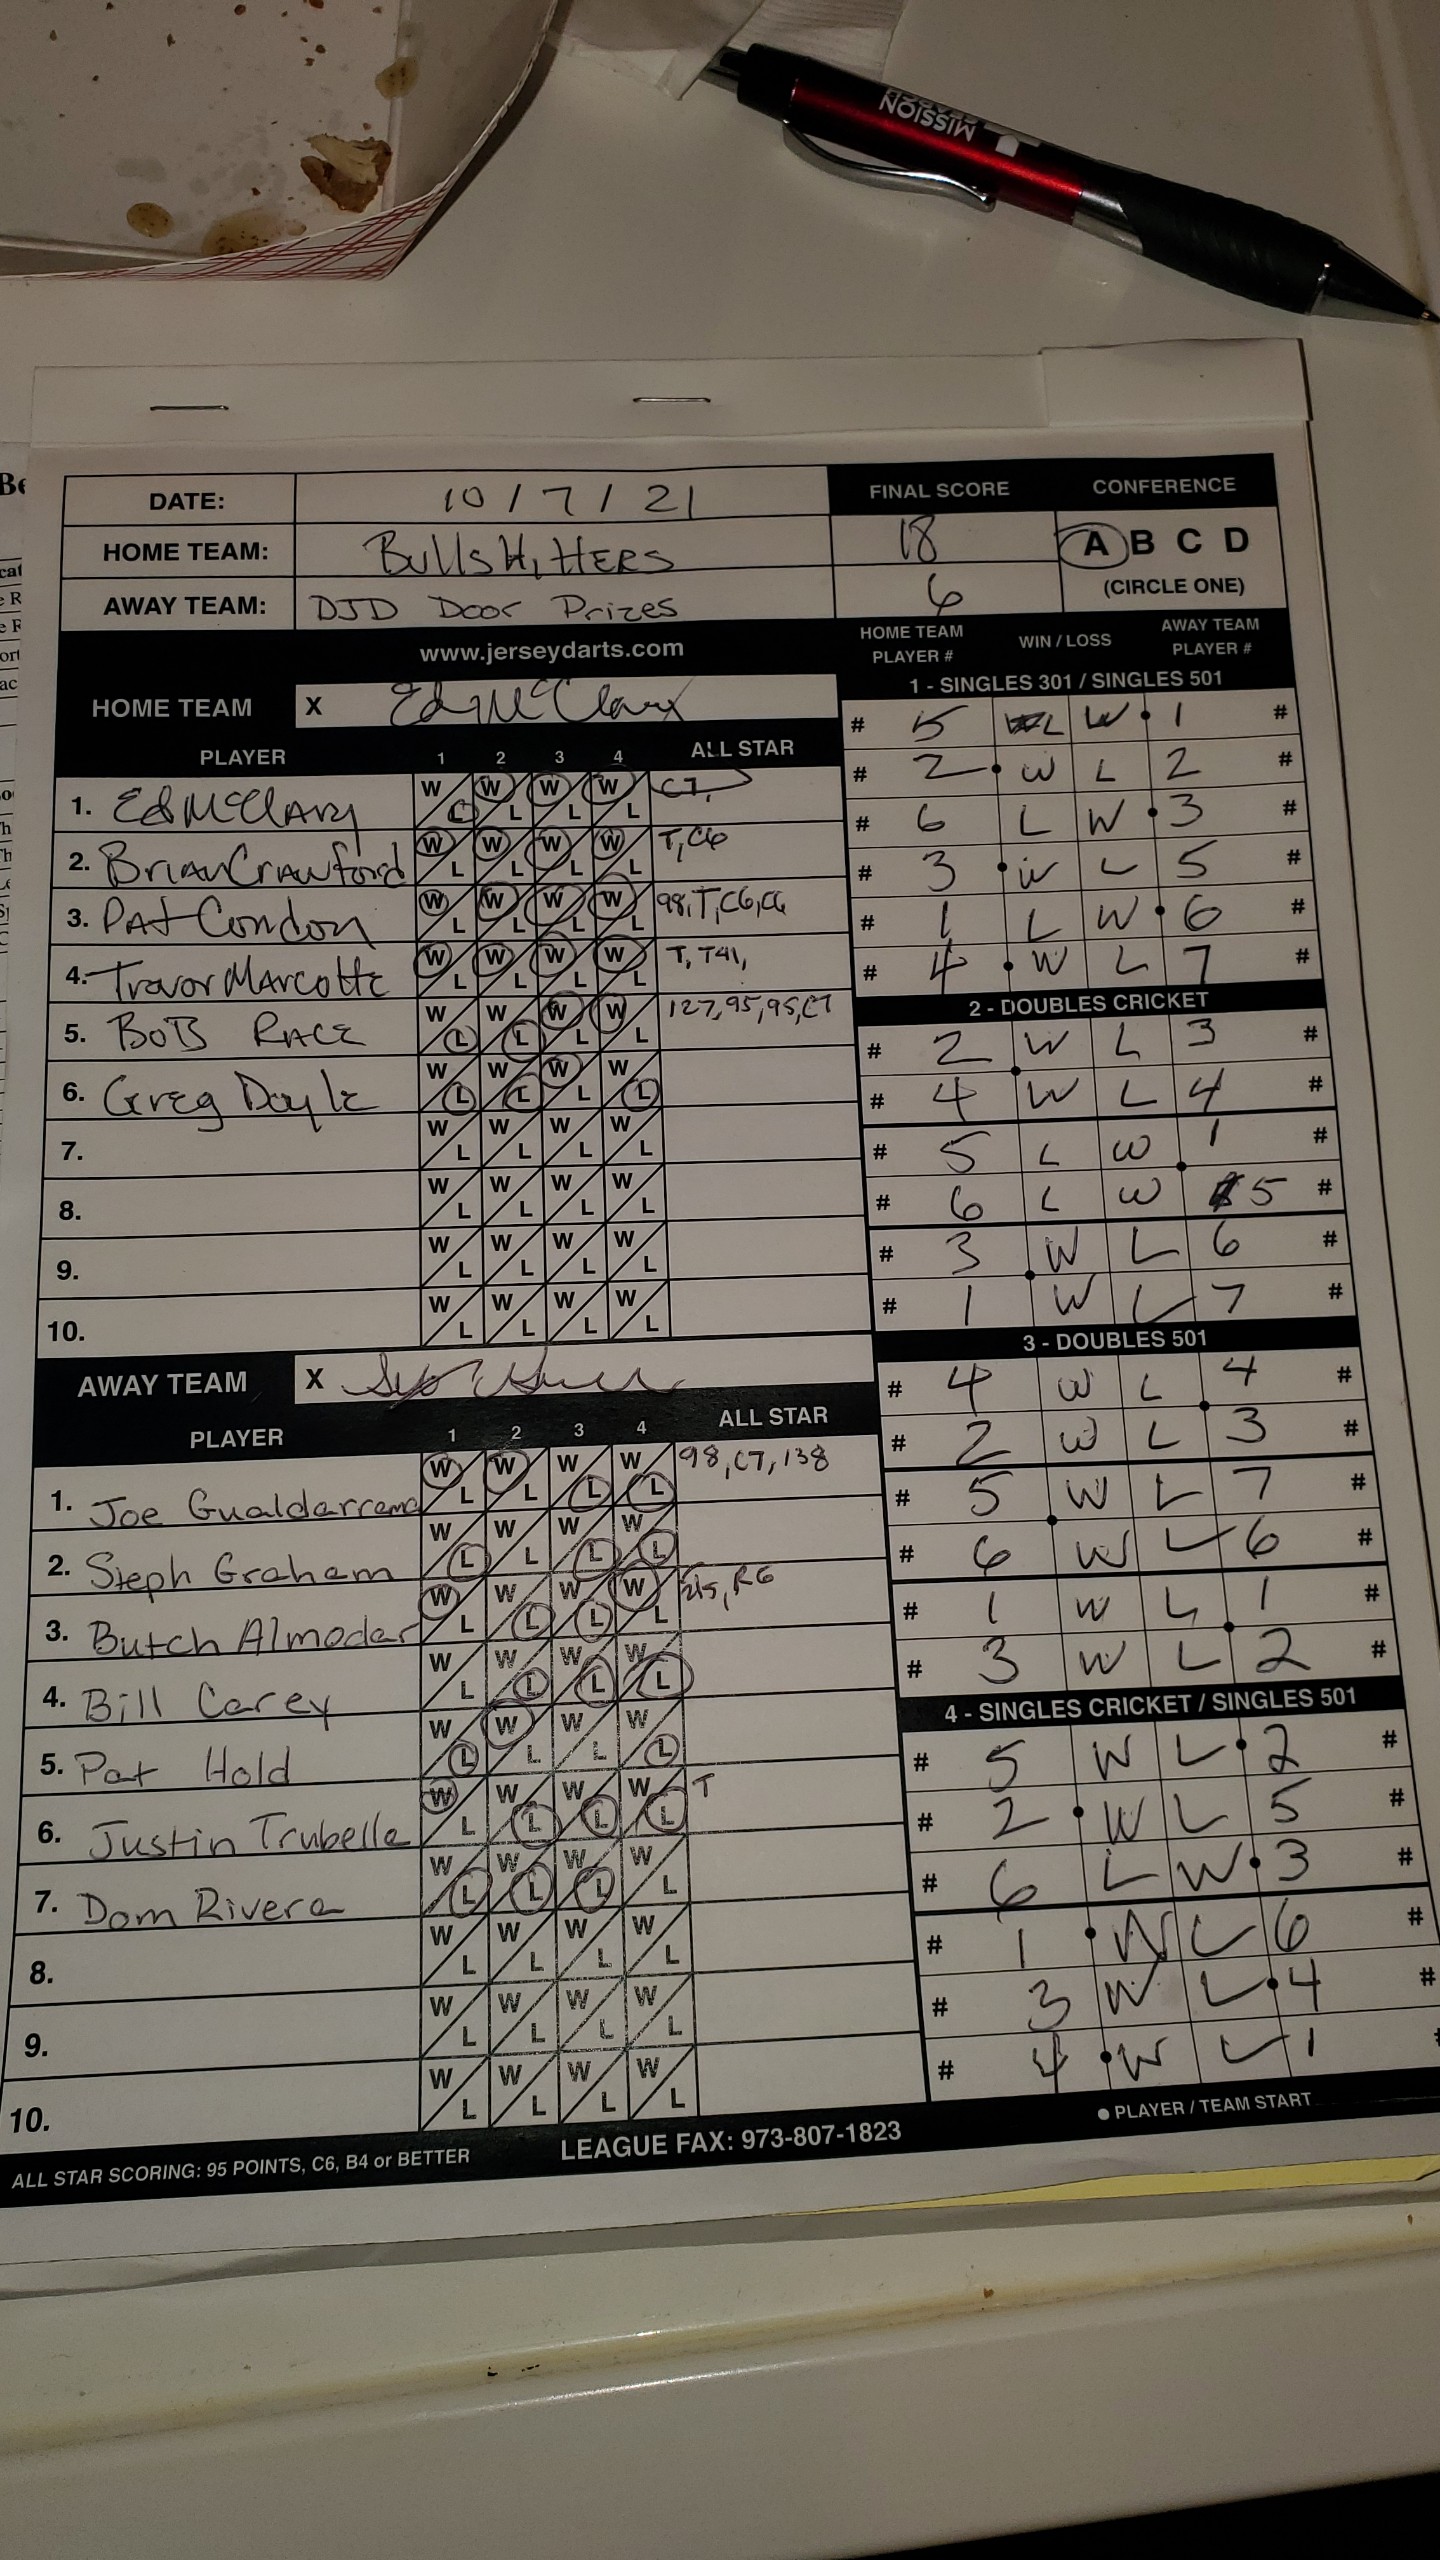 MISSION
DATE: 10/7/21
FINAL SCORE CONFERENCE
HOME TEAM: BullsHitters 18
A B C D
AWAY TEAM: DJD Door Prizes 6
(CIRCLE ONE)
www.jerseydarts.com
HOME TEAM PLAYER # WIN / LOSS AWAY TEAM PLAYER #
HOME TEAM X Ed McClary
PLAYER 1 2 3 4 ALL STAR
1. Ed McClary W L W L W L W L C7,
2. Brian Crawford W L W L W L W L T, C6
3. Pat Condon W L W L W L W L 98, T, C6, C6
4. Trevor Marcotte W L W L W L W L T, T41,
5. BOB RACE W L W L W L W L 127, 95, 95, C7
6. Greg Doyle W L W L W L W L
7. W L W L W L W L
8. W L W L W L W L
9. W L W L W L W L
10. W L W L W L W L
AWAY TEAM X
PLAYER 1 2 3 4 ALL STAR
1. Joe Gualdarrama W L W L W L W L 98, C7, 138
2. Steph Graham W L W L W L W L
3. Butch Almodar W L W L W L W L R6
4. Bill Carey W L W L W L W L
5. Pat Hold W L W L W L W L
6. Justin Trubelle W L W L W L W L T
7. Dom Rivera W L W L W L W L
8. W L W L W L W L
9. W L W L W L W L
10. W L W L W L W L
1 - SINGLES 301 / SINGLES 501
# 5 L W 1 #
# 2 W L 2 #
# 6 L W 3 #
# 3 W L 5 #
# 1 L W 6 #
# 4 W L 7 #
2 - DOUBLES CRICKET
# 2 W L 3 #
# 4 W L 4 #
# 5 L W 1 #
# 6 L W 5 #
# 3 W L 6 #
# 1 W L 7 #
3 - DOUBLES 501
# 4 W L 4 #
# 2 W L 3 #
# 5 W L 7 #
# 6 W L 6 #
# 1 W L 1 #
# 3 W L 2 #
4 - SINGLES CRICKET / SINGLES 501
# 5 W L 2 #
# 2 W L 5 #
# 6 L W 3 #
# 1 W L 6 #
# 3 W L 4 #
# 4 W L 1 #
ALL STAR SCORING: 95 POINTS, C6, B4 or BETTER
LEAGUE FAX: 973-807-1823
● PLAYER / TEAM START